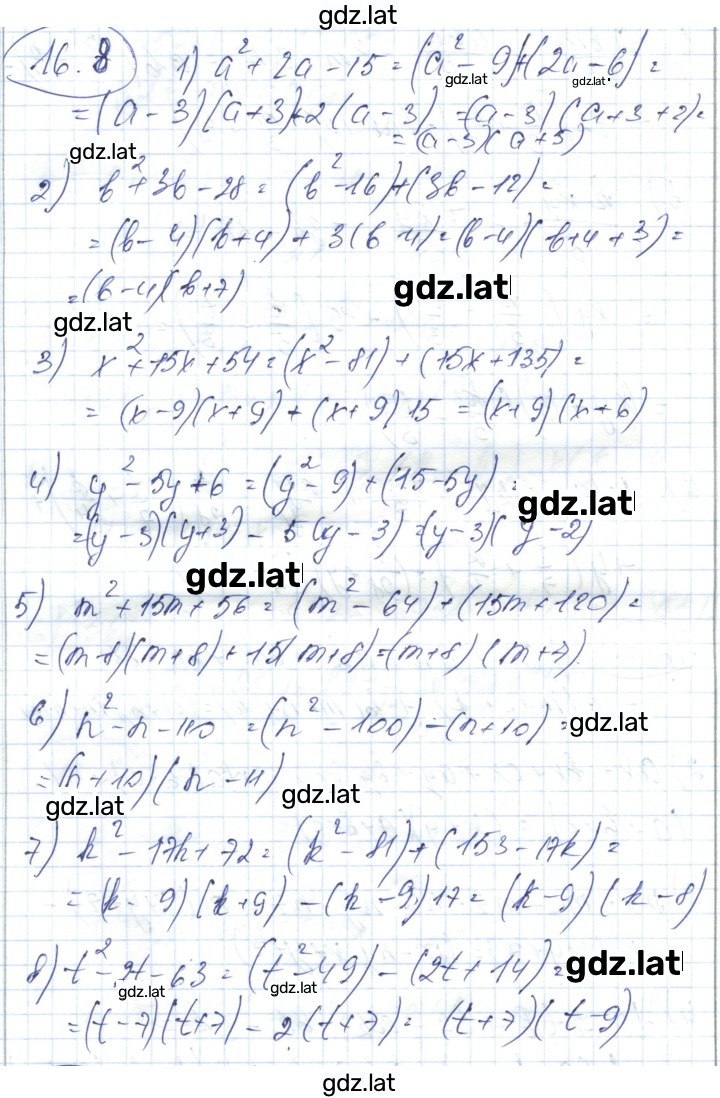 gdz.lat
16.8 1) a² + 2a - 15 = (a² - 9) + (2a - 6) =
gdz.lat gdz.lat
= (a - 3)(a + 3) + 2(a - 3) = (a - 3)(a + 3 + 2) =
= (a - 3)(a + 5)
gdz.lat
2) b² + 3b - 28 = (b² - 16) + (3b - 12) =
= (b - 4)(b + 4) + 3(b - 4) = (b - 4)(b + 4 + 3) =
= (b - 4)(b + 7)
gdz.lat
gdz.lat
3) x² + 15x + 54 = (x² - 81) + (15x + 135) =
= (x - 9)(x + 9) + (x + 9) 15 = (x + 9)(x + 6)
4) y² - 5y + 6 = (y² - 9) + (15 - 5y) =
gdz.lat
= (y - 3)(y + 3) - 5(y - 3) = (y - 3)(y - 2)
gdz.lat
5) m² + 15m + 56 = (m² - 64) + (15m + 120) =
= (m - 8)(m + 8) + 15(m + 8) = (m + 8)(m + 7)
6) n² - n - 110 = (n² - 100) - (n + 10) =
gdz.lat
= (n + 10)(n - 11)
gdz.lat
gdz.lat
7) k² - 17k + 72 = (k² - 81) + (153 - 17k) =
= (k - 9)(k + 9) - (k - 9) 17 = (k - 9)(k - 8)
8) t² - 2t - 63 = (t² - 49) - (2t + 14) =
gdz.lat
gdz.lat gdz.lat
= (t - 7)(t + 7) - 2(t + 7) = (t + 7)(t - 9)
gdz.lat